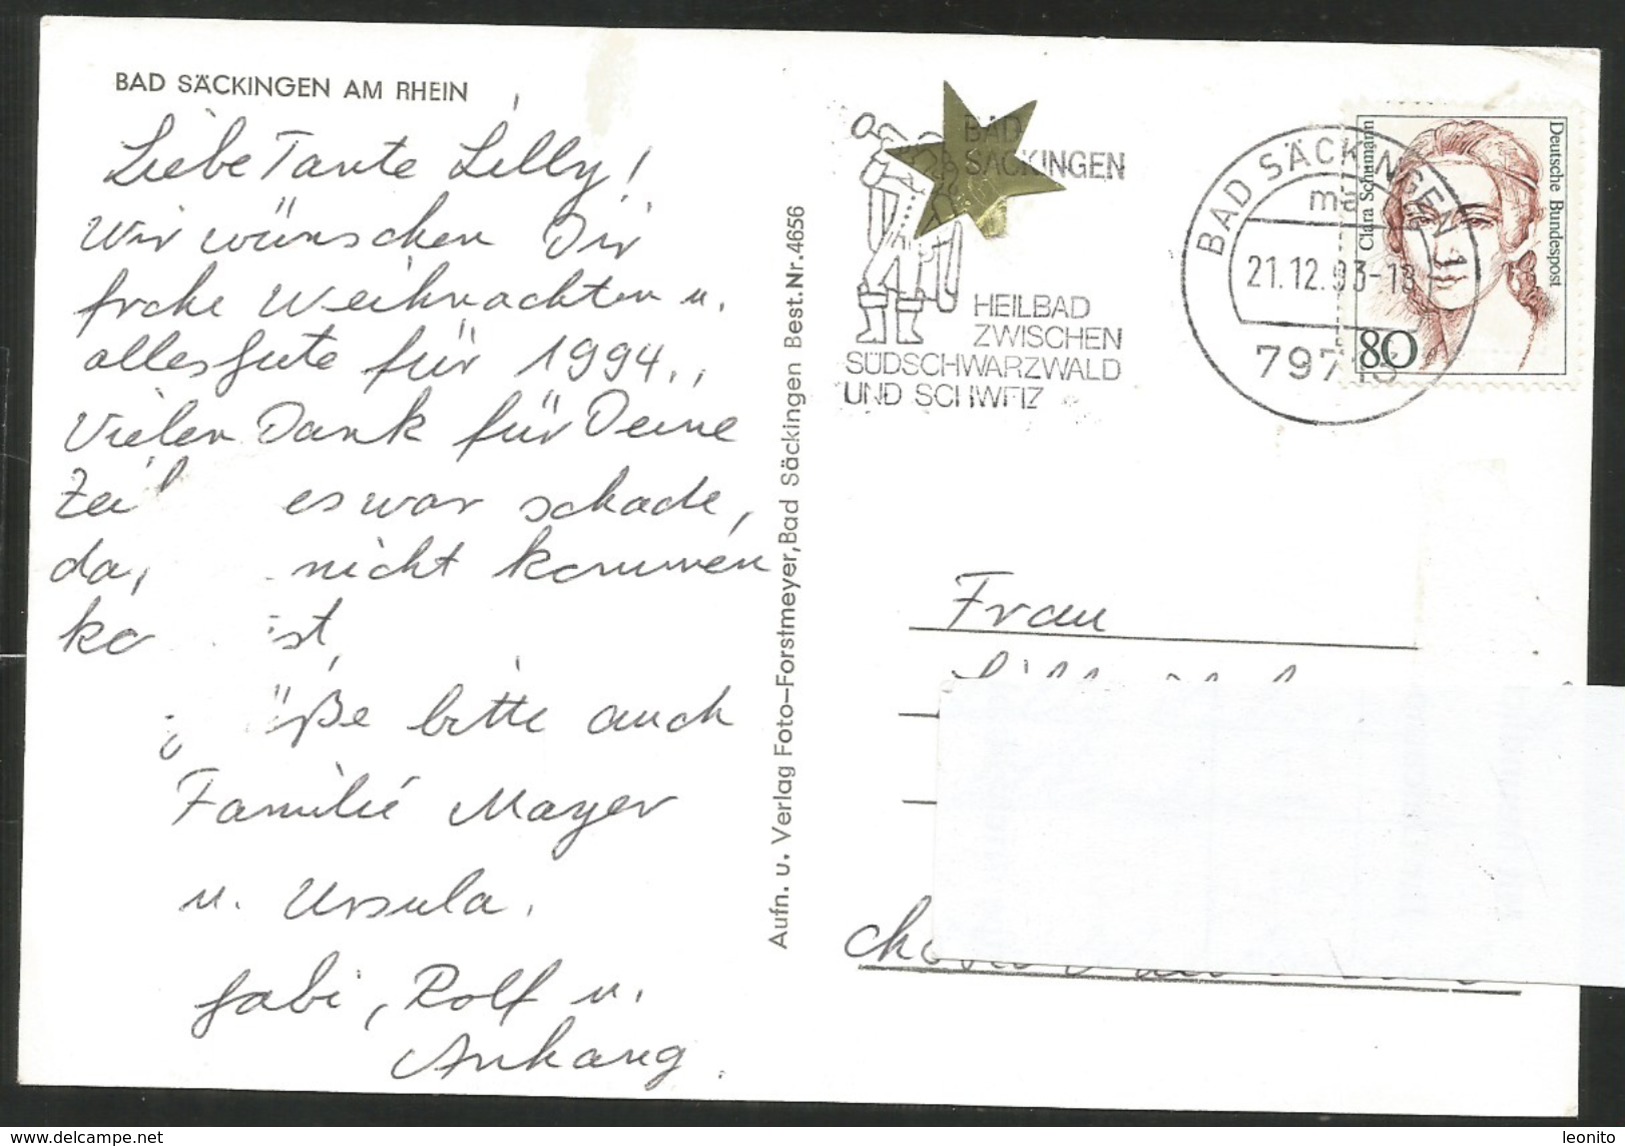 BAD SÄCKINGEN AM RHEIN
Liebe Tante Lilly!
Wir wünschen Dir
frohe Weihnachten u.
alles Gute für 1994.
Vielen Dank für Deine
es war schade,
nicht kommen
ist,
bitte auch
Familie Mayer
u. Ursula.
Gabi, Rolf u.
Anhang.
Aufn. u. Verlag Foto-Forstmeyer, Bad Säckingen Best.Nr. 4656
BAD
SÄCKINGEN
HEILBAD
ZWISCHEN
SÜDSCHWARZWALD
UND SCHWEIZ
BAD SÄCKINGEN 1
ma
21.12.93-18
79713
Clara Schumann
Deutsche Bundespost
80
Frau
delcampe.net
leonito